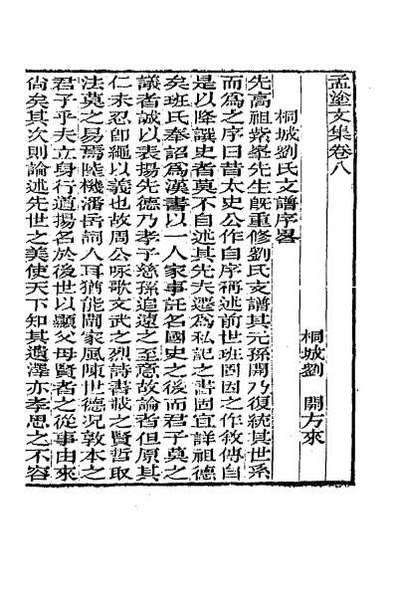 孟塗文集卷八
桐城劉 開方來
桐城劉氏支譜序畧
先高祖峯先生旣重修劉氏支譜其元孫開乃復統其世系
而爲之序曰昔太史公作自序稱述前世班固因之作敘傳自
是以降譔史者莫不自述其先夫遷爲私記之書固宜詳祖德
矣班氏奉詔爲漢書以一人家事託名國史之後而君子莫之
議者誠以表揚先德乃孝子慈孫追遠之至意故論者但原其
仁未忍卽繩以義也故周公咏歌文武之烈詩書載之賢哲取
法莫之易焉陸機潘岳詞人耳猶能闡家風陳世德况敦本之
君子乎夫立身行道揚名於後世以顯父母賢者之從事由來
尙矣其次則論述先世之美使天下知其遺澤亦孝思之不容